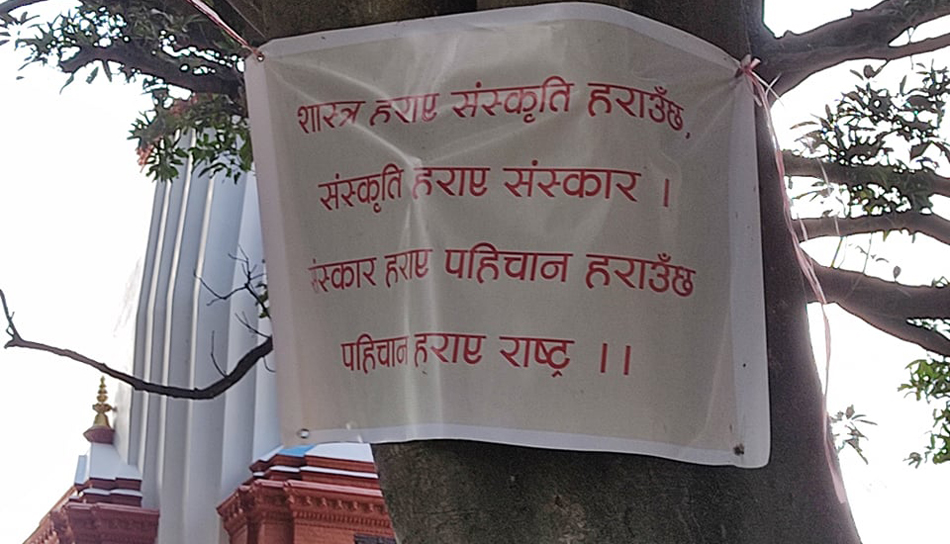 शास्त्र हराए संस्कृति हराउँछ,
संस्कृति हराए संस्कार ।
संस्कार हराए पहिचान हराउँछ
पहिचान हराए राष्ट्र ।।